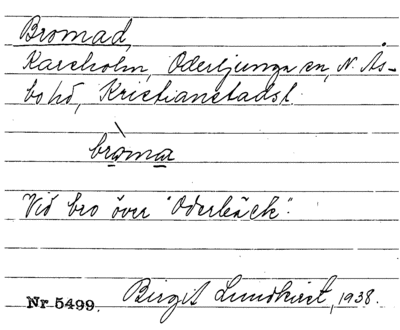 Bromad,
Karsholm, Oderljunga sn, N. Ås-
bo hd, Kristianstads l.
bròma
Vid bro över "Oderbäck".
Nr 5499. Birgit Lundkvist, 1938.